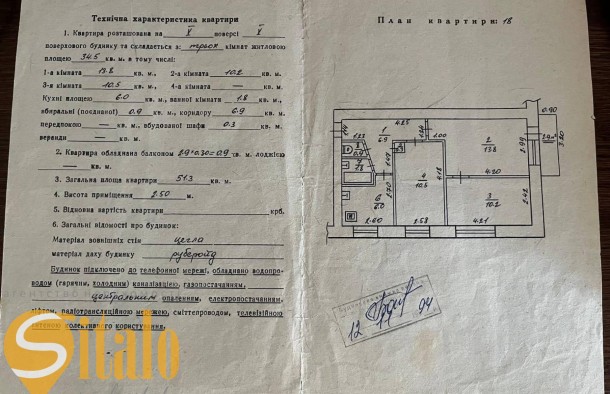 Технічна характеристика квартири
1. Квартира розташована на V поверсі V
поверхового будинку та складається з: трьох кімнат житловою
площею 34.5 кв. м. в тому числі:
1-а кімната 13.8 кв. м., 2-а кімната 10.2 кв. м.
3-я кімната 10.5 кв. м., 4-а кімната — кв. м.
Кухні площею 6.0 кв. м., ванної кімнати 1.8 кв. м.
вбиральні (поєднаної) 0.9 кв. м., коридору 6.9 кв. м.
передпокою — кв. м., вбудованої шафи 0.3 кв. м.
веранди — кв. м.
2. Квартира обладнана балконом 2.9*0.30=0.9 кв. м. лоджією
— кв. м.
3. Загальна площа квартири 51.3 кв. м.
4. Висота приміщення 2.50 м.
5. Відновна вартість квартири крб.
6. Загальні відомості про будинок:
Матеріал зовнішніх стін цегла
матеріал даху будинку рубероїд
Будинок підключено до телефонної мережі, обладнано водопро-
водом (гарячим, холодним) каналізацією, газопостачанням,
центральним опаленням, електропостачанням,
радіотрансляційною мережею, сміттепроводом, телевізійною
колективного користування.
Sitalo
План квартири: 18
4.25
1
6.9
1.00
2
13.8
2.99
0.90
4.20
4
10.5
4.18
3
10.2
2.42
2.70
6
6.0
2.60
2.58
4.21
12 94